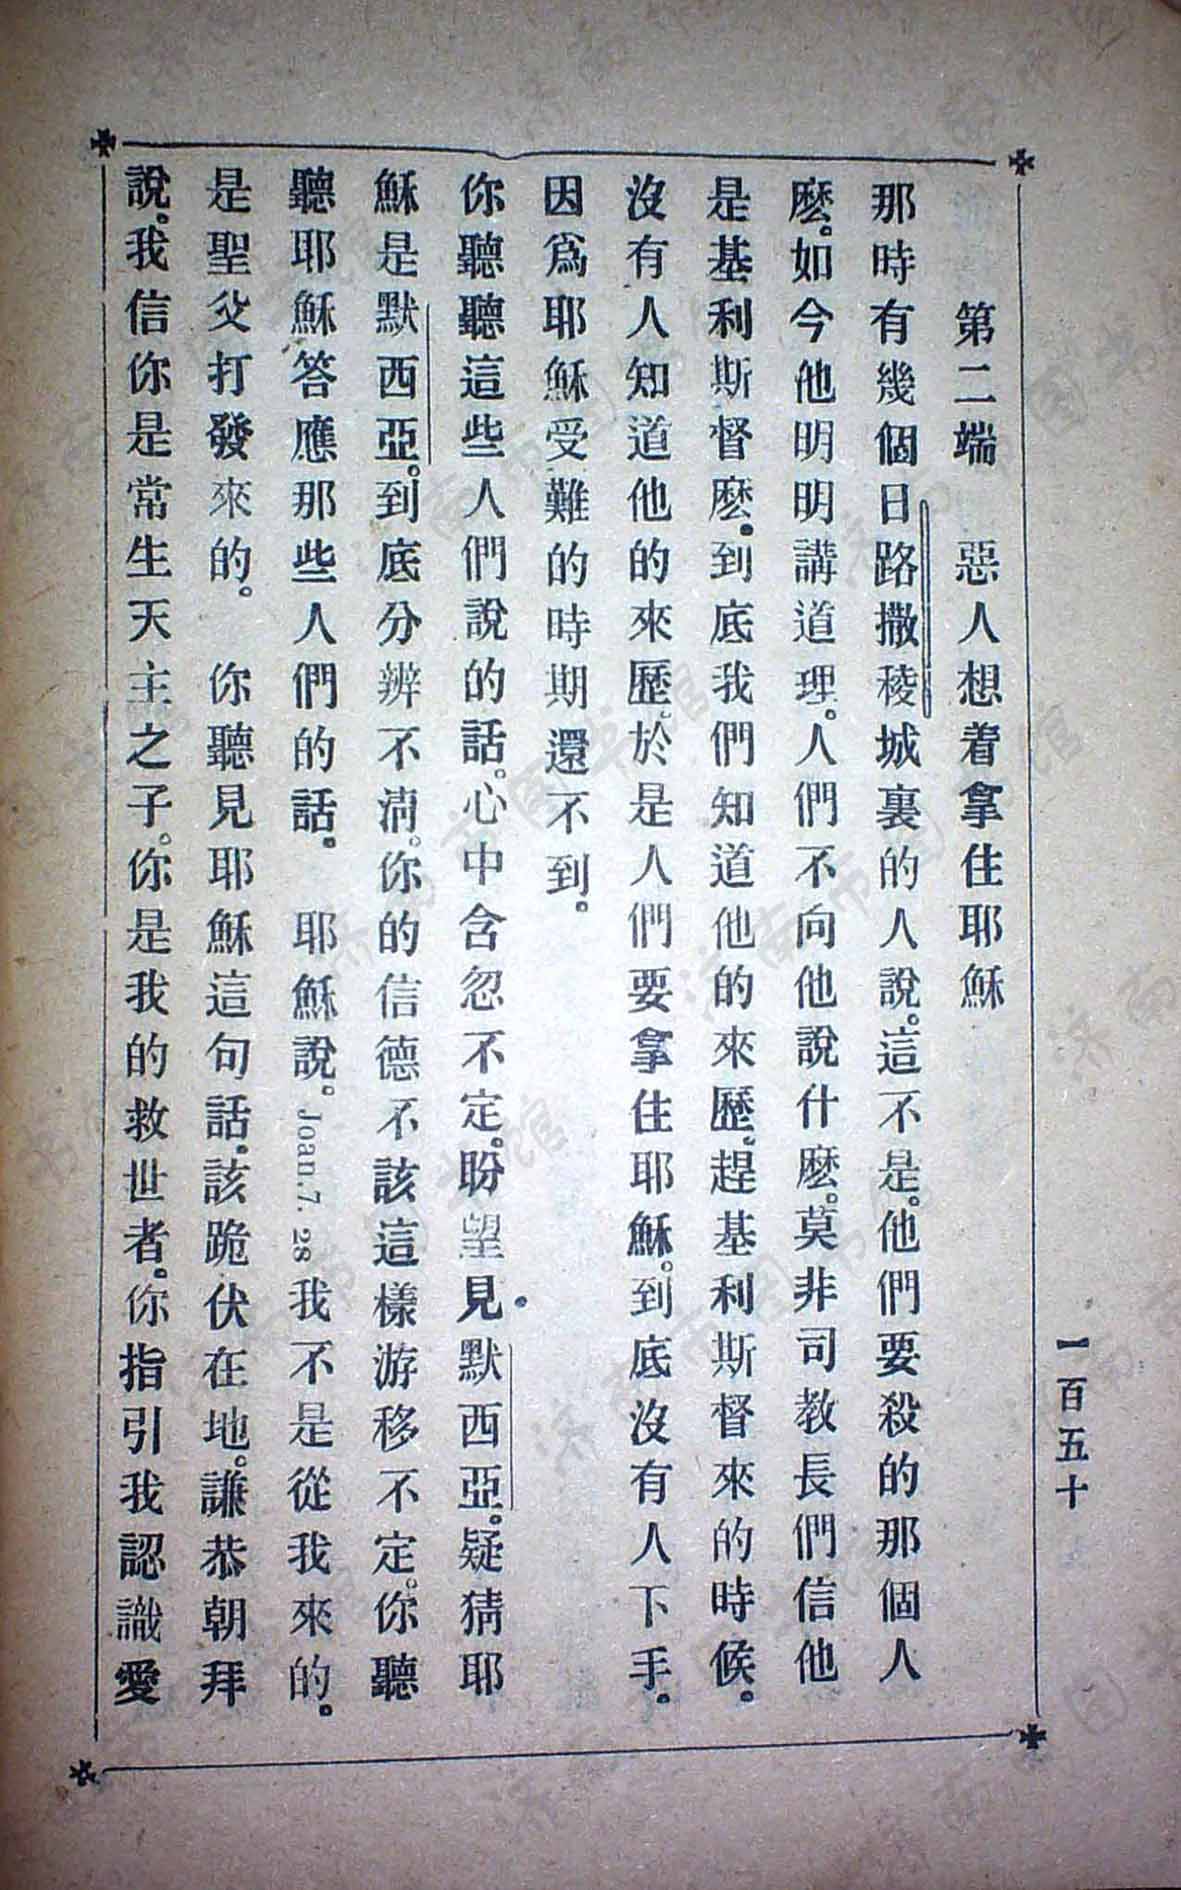 一百五十
第二端　惡人想着拿住耶穌
那時有幾個日路撒稜城裏的人說。這不是。他們要殺的那個人
麼。如今他明明講道理。人們不向他說什麼。莫非司教長們信他
是基利斯督麼。到底我們知道他的來歷。趕基利斯督來的時候。
沒有人知道他的來歷。於是人們要拿住耶穌。到底沒有人下手。
因爲耶穌受難的時期還不到。
你聽聽這些人們說的話。心中含忽不定。盼望見默西亞。疑猜耶
穌是默西亞。到底分辨不淸。你的信德不該這樣游移不定。你聽
聽耶穌答應那些人們的話。　耶穌說。Joan. 7. 28 我不是從我來的。
是聖父打發來的。　你聽見耶穌這句話。該跪伏在地。謙恭朝拜
說。我信你是常生天主之子。你是我的救世者。你指引我認識愛